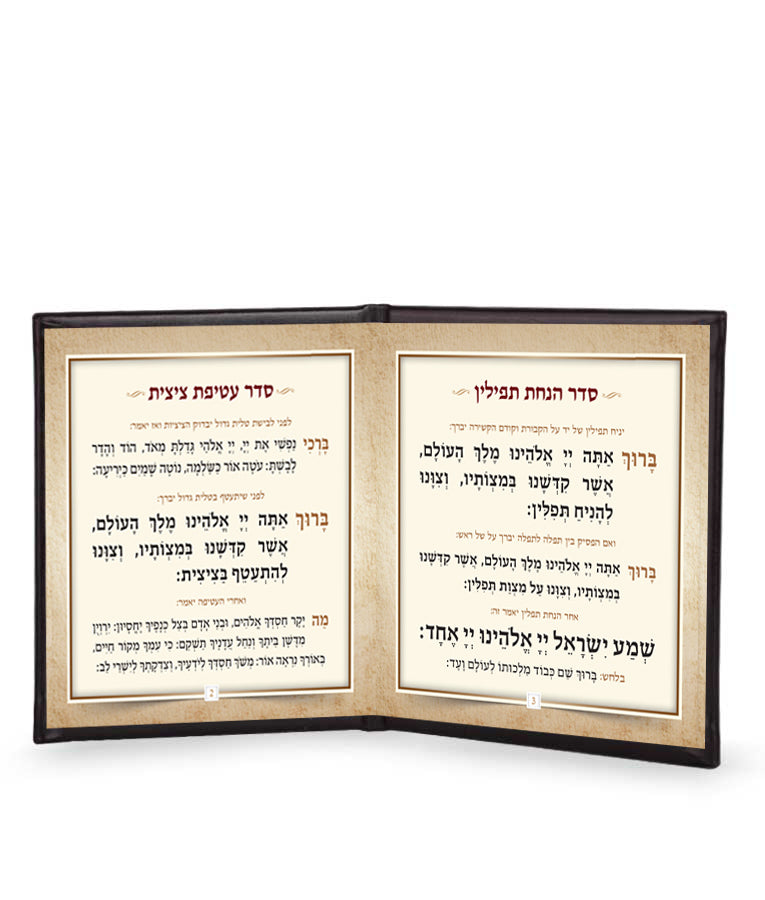 סדר עטיפת ציצית
לפני לבישת טלית גדול יבדוק הציציות ואז יאמר:
בָּרְכִי נַפְשִׁי אֶת יְיָ, יְיָ אֱלֹהַי גָּדַלְתָּ מְאֹד, הוֹד וְהָדָר
לָבָשְׁתָּ: עֹטֶה אוֹר כַּשַּׂלְמָה, נוֹטֶה שָׁמַיִם כַּיְרִיעָה:
לפני שיתעטף בטלית גדול יברך:
בָּרוּךְ אַתָּה יְיָ אֱלֹהֵינוּ מֶלֶךְ הָעוֹלָם,
אֲשֶׁר קִדְּשָׁנוּ בְּמִצְוֹתָיו, וְצִוָּנוּ
לְהִתְעַטֵּף בְּצִיצִית:
ואחרי העטיפה יאמר:
מַה יָּקָר חַסְדְּךָ אֱלֹהִים, וּבְנֵי אָדָם בְּצֵל כְּנָפֶיךָ יֶחֱסָיוּן: יִרְוְיֻן
מִדֶּשֶׁן בֵּיתֶךָ וְנַחַל עֲדָנֶיךָ תַשְׁקֵם: כִּי עִמְּךָ מְקוֹר חַיִּים,
בְּאוֹרְךָ נִרְאֶה אוֹר: מְשֹׁךְ חַסְדְּךָ לְיֹדְעֶיךָ, וְצִדְקָתְךָ לְיִשְׁרֵי לֵב:
2
סדר הנחת תפילין
יניח תפילין של יד על הקבורת וקודם הקשירה יברך:
בָּרוּךְ אַתָּה יְיָ אֱלֹהֵינוּ מֶלֶךְ הָעוֹלָם,
אֲשֶׁר קִדְּשָׁנוּ בְּמִצְוֹתָיו, וְצִוָּנוּ
לְהָנִיחַ תְּפִלִּין:
ואם הפסיק בין תפלה לתפלה יברך על של ראש:
בָּרוּךְ אַתָּה יְיָ אֱלֹהֵינוּ מֶלֶךְ הָעוֹלָם, אֲשֶׁר קִדְּשָׁנוּ
בְּמִצְוֹתָיו, וְצִוָּנוּ עַל מִצְוַת תְּפִלִּין:
אחר הנחת תפלין יאמר זה:
שְׁמַע יִשְׂרָאֵל יְיָ אֱלֹהֵינוּ יְיָ אֶחָד:
בלחש: בָּרוּךְ שֵׁם כְּבוֹד מַלְכוּתוֹ לְעוֹלָם וָעֶד:
3